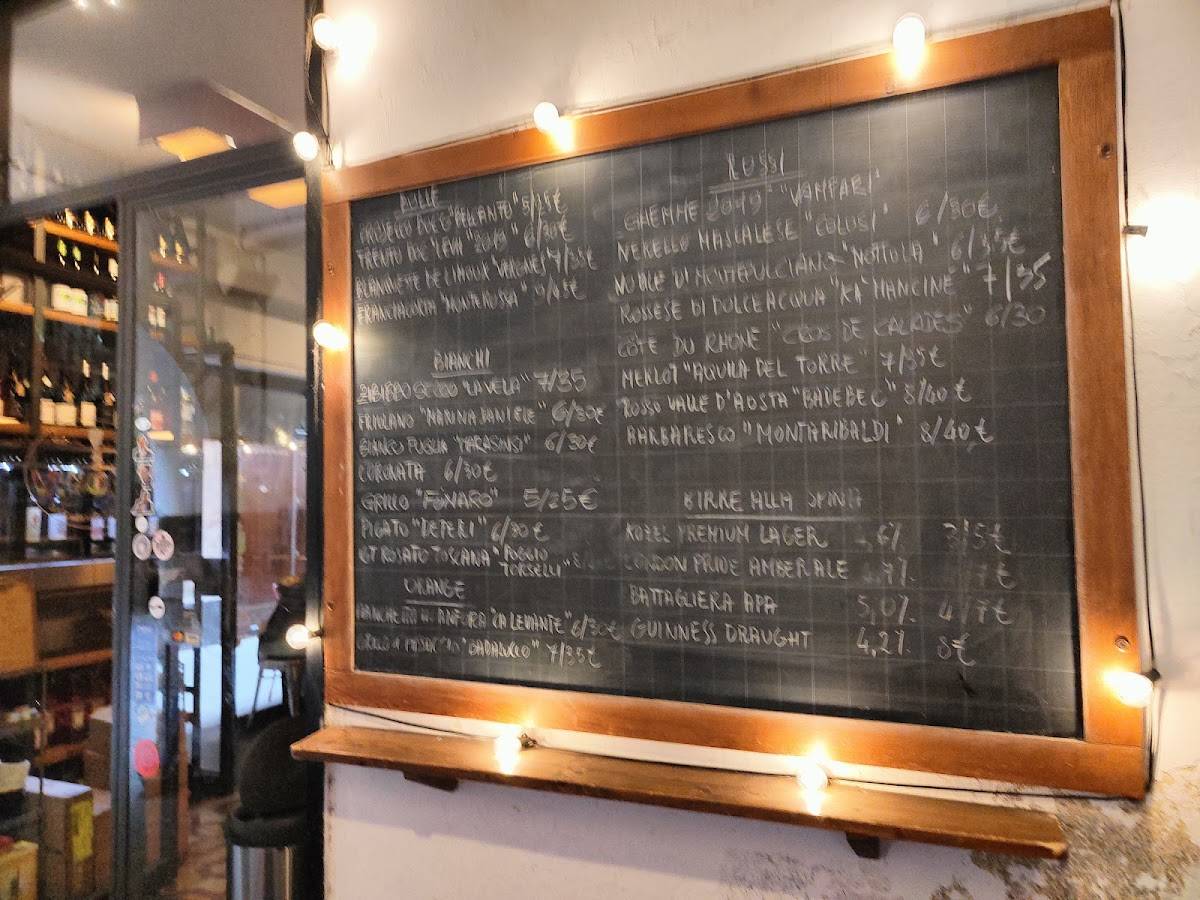 BOLLE
PROSECCO DOCG "BELCANTO" 5/25€
TRENTO DOC "LEVII" 2019 6/30€
BLANQUETTE DE LIMOUX 7/35€
FRANCIACORTA "MONTEROSSA" 9/45€
BIANCHI
ZIBIBBO SECCO "LA VELA" 7/35
FRIULANO "MARINA DANIELI" 6/30€
BIANCO PUGLIA 6/30€
CORONATA 6/30€
GRILLO "FUNARO" 5/25€
PIGATO "DEPERI" 6/30€
IGT ROSATO TOSCANA "POGGIO TORSELLI"
ORANGE
ANFORA "CA LEVANTE" 6/30€
7/35€
ROSSI
GHEMME 2019 "VAMPARI"
NERELLO MASCALESE "COLOSI" 6/30€
NOBILE DI MONTEPULCIANO "NOTTOLA" 6/35€
ROSSESE DI DOLCEACQUA "KA MANCINÉ" 7/35
CÔTE DU RHONE "CLOS DE CALADES" 6/30
MERLOT "AQUILA DEL TORRE" 7/35€
ROSSO VALLE D'AOSTA "BADEBEC" 8/40€
BARBARESCO "MONTARIBALDI" 8/40€
BIRRE ALLA SPINA
KOZEL PREMIUM LAGER 3/5€
LONDON PRIDE AMBER ALE
BATTAGLIERA APA 5,0% 4/7€
GUINNESS DRAUGHT 4,2% 8€